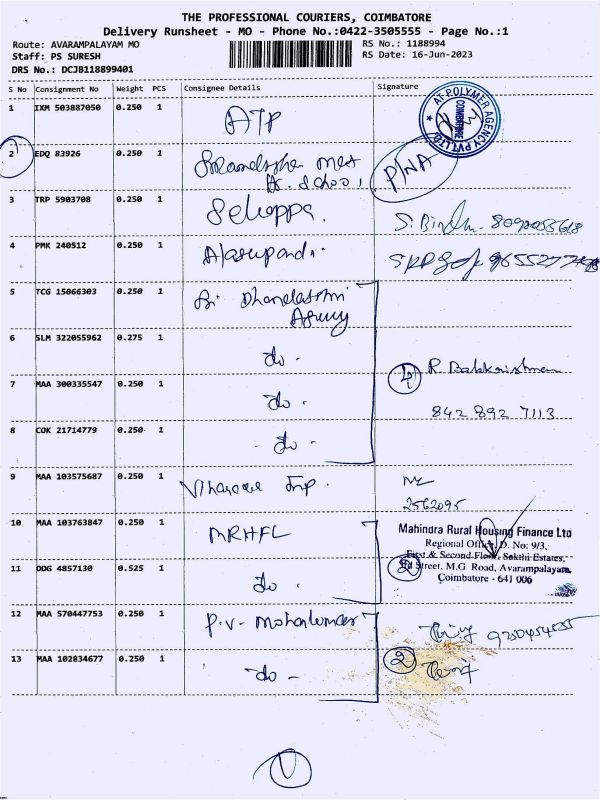 THE PROFESSIONAL COURIERS, COIMBATORE
Delivery Runsheet - MO - Phone No.:0422-3505555 - Page No.:1
Route: AVARAMPALAYAM MO
RS No.: 1188994
Staff: PS SURESH
RS Date: 16-Jun-2023
DRS No.: DCJB118899401
S No Consignment No Weight PCS Consignee Details Signature
1 IXM 503887050 0.250 1 ATP
AT POLYMER AGENCY PVT LTD
COIMBATORE
2 EDQ 83926 0.250 1 Mat
P/NA
3 TRP 5903708 0.250 1 S. Bindu
4 PMK 240512 0.250 1
5 TCG 15066303 0.250 1 Sri Dhanalatshmi
Agency
6 SLM 322055962 0.275 1 do -
4 R. Balakrishnan
7 MAA 300335547 0.250 1 do -
842 892 7113
8 COK 21714779 0.250 1 do -
9 MAA 103575687 0.250 1
2562095
10 MAA 103763847 0.250 1 MRHFL
Mahindra Rural Housing Finance Ltd
Regional Office, D. No: 9/3,
First & Second Floor, Sakthi Estates,
Street, M.G Road, Avarampalayam,
Coimbatore - 641 006
11 ODG 4857130 0.525 1 do -
2
12 MAA 570447753 0.250 1 P.V- Mohankumar
13 MAA 102834677 0.250 1 do -
2